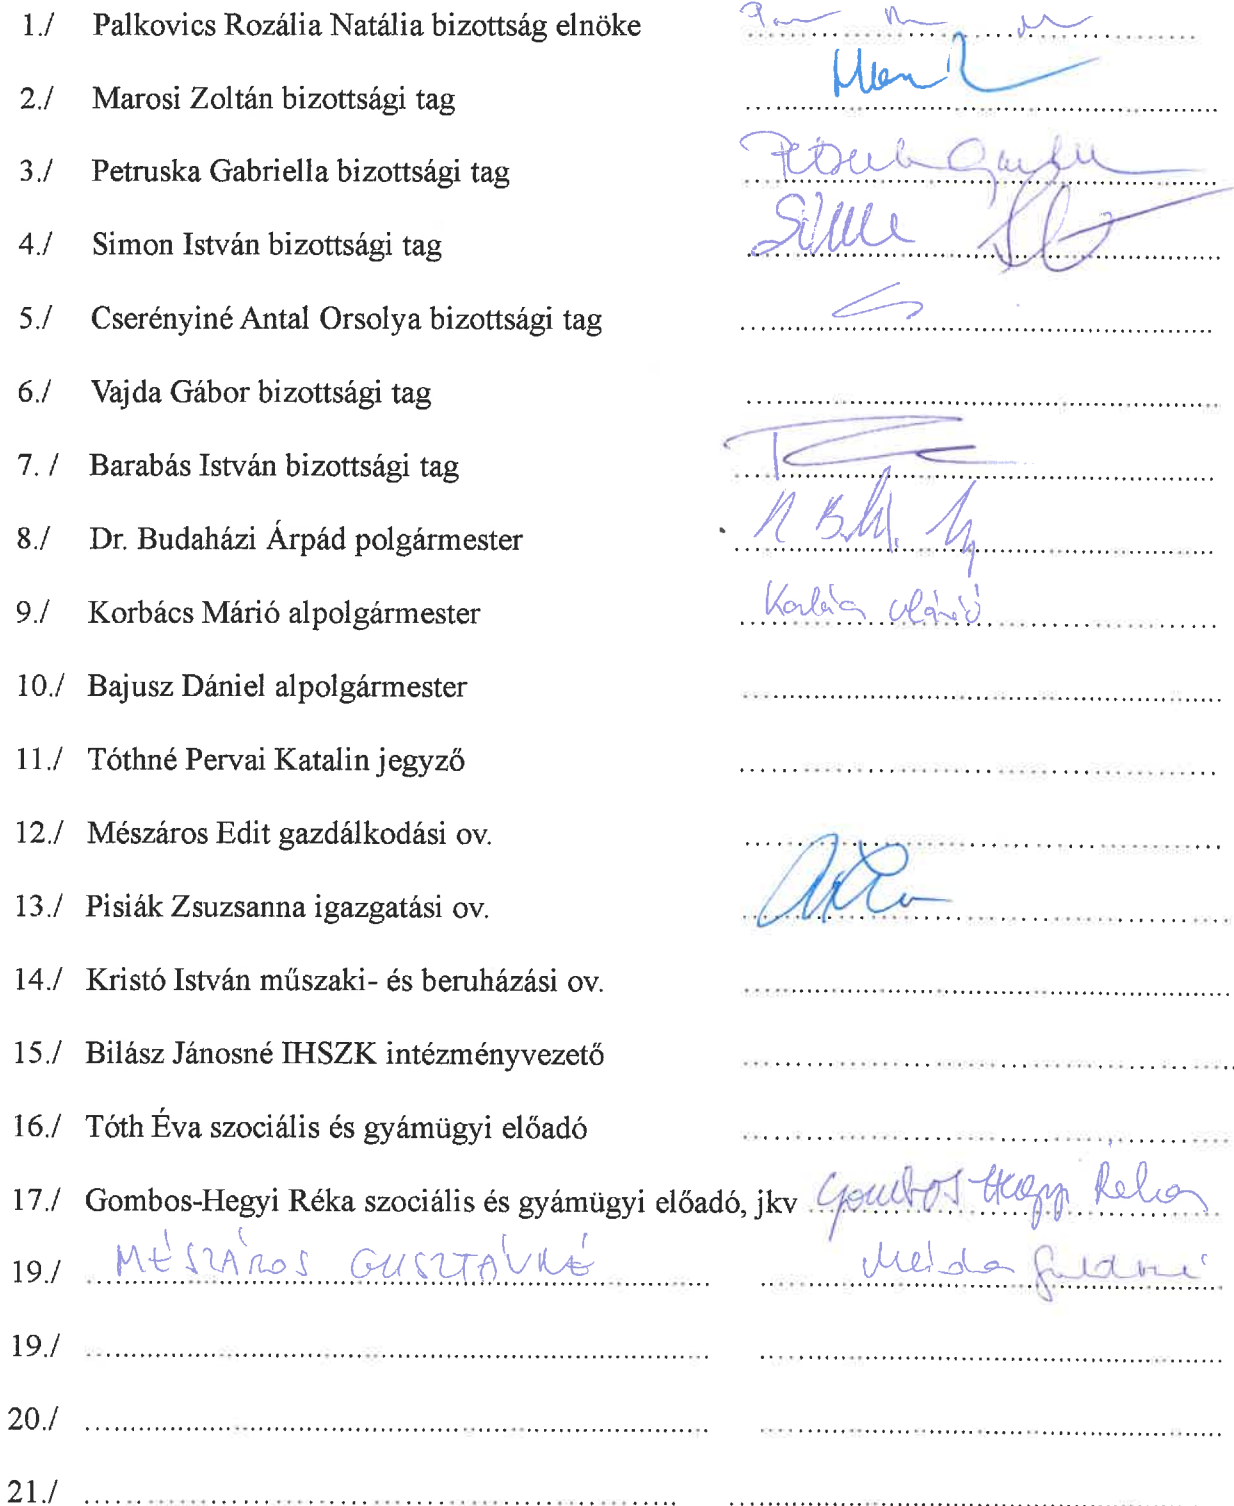 1./ Palkovics Rozália Natália bizottság elnöke
2./ Marosi Zoltán bizottsági tag
3./ Petruska Gabriella bizottsági tag
4./ Simon István bizottsági tag
5./ Cserényiné Antal Orsolya bizottsági tag
6./ Vajda Gábor bizottsági tag
7. / Barabás István bizottsági tag
8./ Dr. Budaházi Árpád polgármester
9./ Korbács Márió alpolgármester Korbács Márió
10./ Bajusz Dániel alpolgármester
11./ Tóthné Pervai Katalin jegyző
12./ Mészáros Edit gazdálkodási ov.
13./ Pisiák Zsuzsanna igazgatási ov.
14./ Kristó István műszaki- és beruházási ov.
15./ Bilász Jánosné IHSZK intézményvezető
16./ Tóth Éva szociális és gyámügyi előadó
17./ Gombos-Hegyi Réka szociális és gyámügyi előadó, jkv Gombos Hegyi Réka
19./ MÉSZÁROS GUSZTÁVNÉ
19./
20./
21./